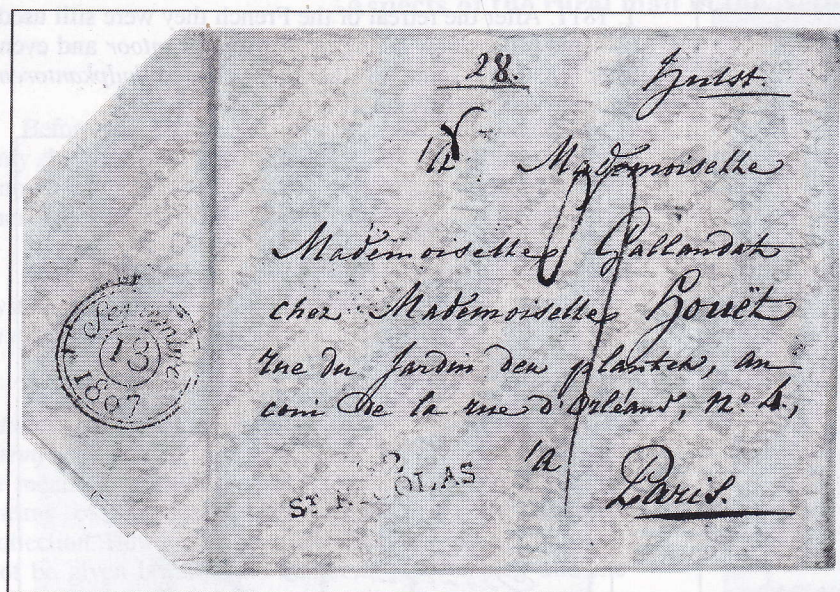 28. Hulst.
à Mademoiselle
Mademoiselle Gallandat
chez Mademoiselle Houët
rue du Jardin des plantes, au
coin de la rue d'Orléans, nº 4,
à
Paris.
Septembre
13
1807
ST NICOLAS